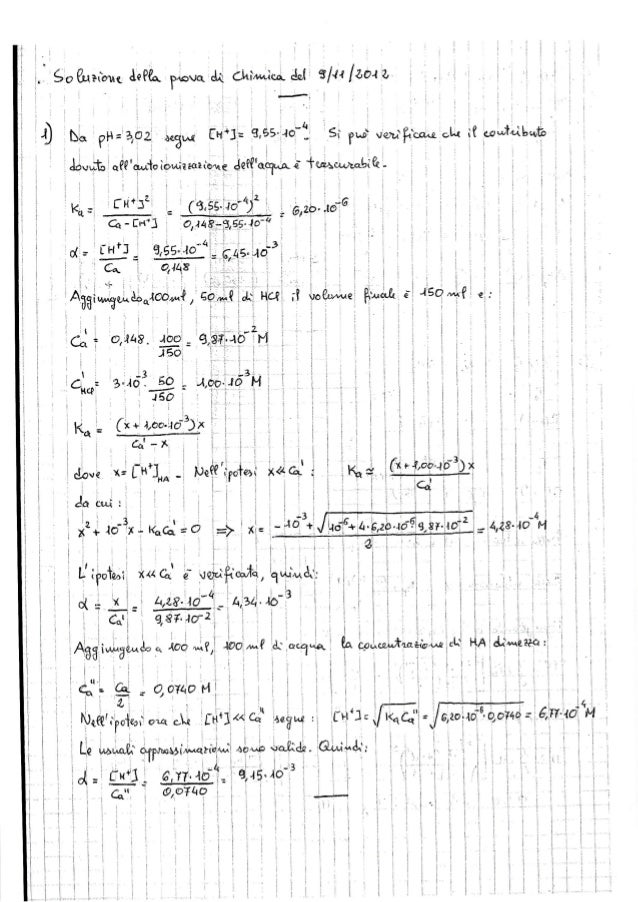 . Soluzione della prova di Chimica del 9/11/2012
1) Da pH = 3,02 segue [H⁺] = 9,55·10⁻⁴. Si può verificare che il contributo
dovuto all'autoionizzazione dell'acqua è trascurabile.
Ka = [H⁺]² / (Ca - [H⁺]) = (9,55·10⁻⁴)² / (0,148 - 9,55·10⁻⁴) = 6,20·10⁻⁶
α = [H⁺] / Ca = 9,55·10⁻⁴ / 0,148 = 6,45·10⁻³
Aggiungendo a 100 ml, 50 ml di HCl il volume finale è 150 ml e :
Ca' = 0,148 · 100/150 = 9,87·10⁻² M
C'HCl = 3·10⁻³ · 50/150 = 1,00·10⁻³ M
Ka = (x + 1,00·10⁻³) x / (Ca' - x)
dove x = [H⁺]HA - Nell'ipotesi x << Ca' : Ka ≃ (x + 1,00·10⁻³) x / Ca'
da cui :
x² + 10⁻³x - KaCa' = 0 ⇒ x = (-10⁻³ + √(10⁻⁶ + 4·6,20·10⁻⁶·9,87·10⁻²)) / 2 = 4,28·10⁻⁴ M
L'ipotesi x << Ca' è verificata, quindi:
α = x / Ca' = 4,28·10⁻⁴ / 9,87·10⁻² = 4,34·10⁻³
Aggiungendo a 100 ml, 100 ml di acqua la concentrazione di HA dimezza:
Ca'' = Ca / 2 = 0,0740 M
Nell'ipotesi ora che [H⁺] << Ca'' segue : [H⁺] = √(KaCa'') = √(6,20·10⁻⁶·0,0740) = 6,77·10⁻⁴ M
Le usuali approssimazioni sono valide. Quindi:
α = [H⁺] / Ca'' = 6,77·10⁻⁴ / 0,0740 = 9,15·10⁻³